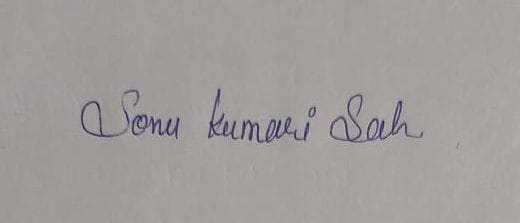 Sonu kumari Sah